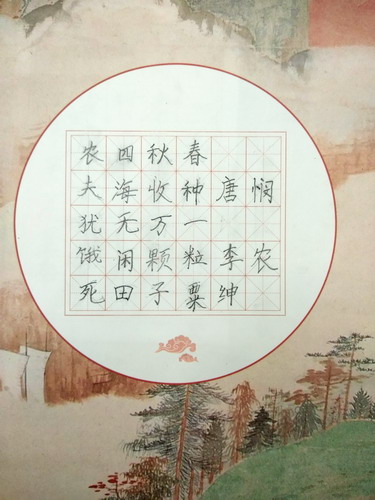 悯农
唐李绅
春种一粒粟
秋收万颗子
四海无闲田
农夫犹饿死